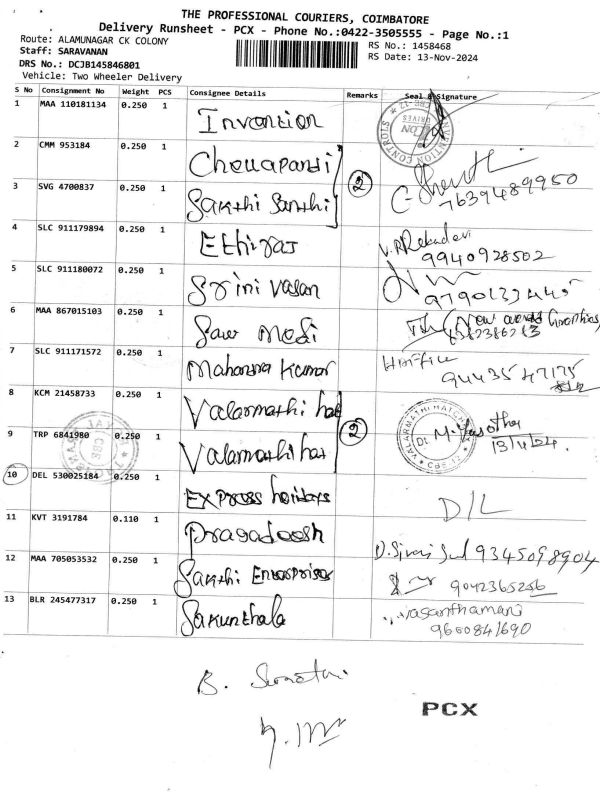 THE PROFESSIONAL COURIERS, COIMBATORE
Delivery Runsheet - PCX - Phone No.:0422-3505555 - Page No.:1
Route: ALAMUNAGAR CK COLONY
Staff: SARAVANAN
DRS No.: DCJB145846801
Vehicle: Two Wheeler Delivery
RS No.: 1458468
RS Date: 13-Nov-2024
S No Consignment No Weight PCS Consignee Details Remarks Seal & Signature
1 MAA 110181134 0.250 1 Invention
2 CMM 953184 0.250 1
3 SVG 4700837 0.250 1 Sakthi Santhi 2 7639489950
4 SLC 911179894 0.250 1 Ethiraj 9940928502
5 SLC 911180072 0.250 1 Srini vasan
6 MAA 867015103 0.250 1 Modi
7 SLC 911171572 0.250 1 Kumar
8 KCM 21458733 0.250 1 Valarmathi hat
9 TRP 6841980 0.250 1 Valarmathi hat 2
10 DEL 530025184 0.250 1 Express holidays D/L
11 KVT 3191784 0.110 1 Pragadeesh 9345098904
12 MAA 705053532 0.250 1 Sakthi Enterprises
13 BLR 245477317 0.250 1 Sakunthala vasanthamani
9600841690
PCX